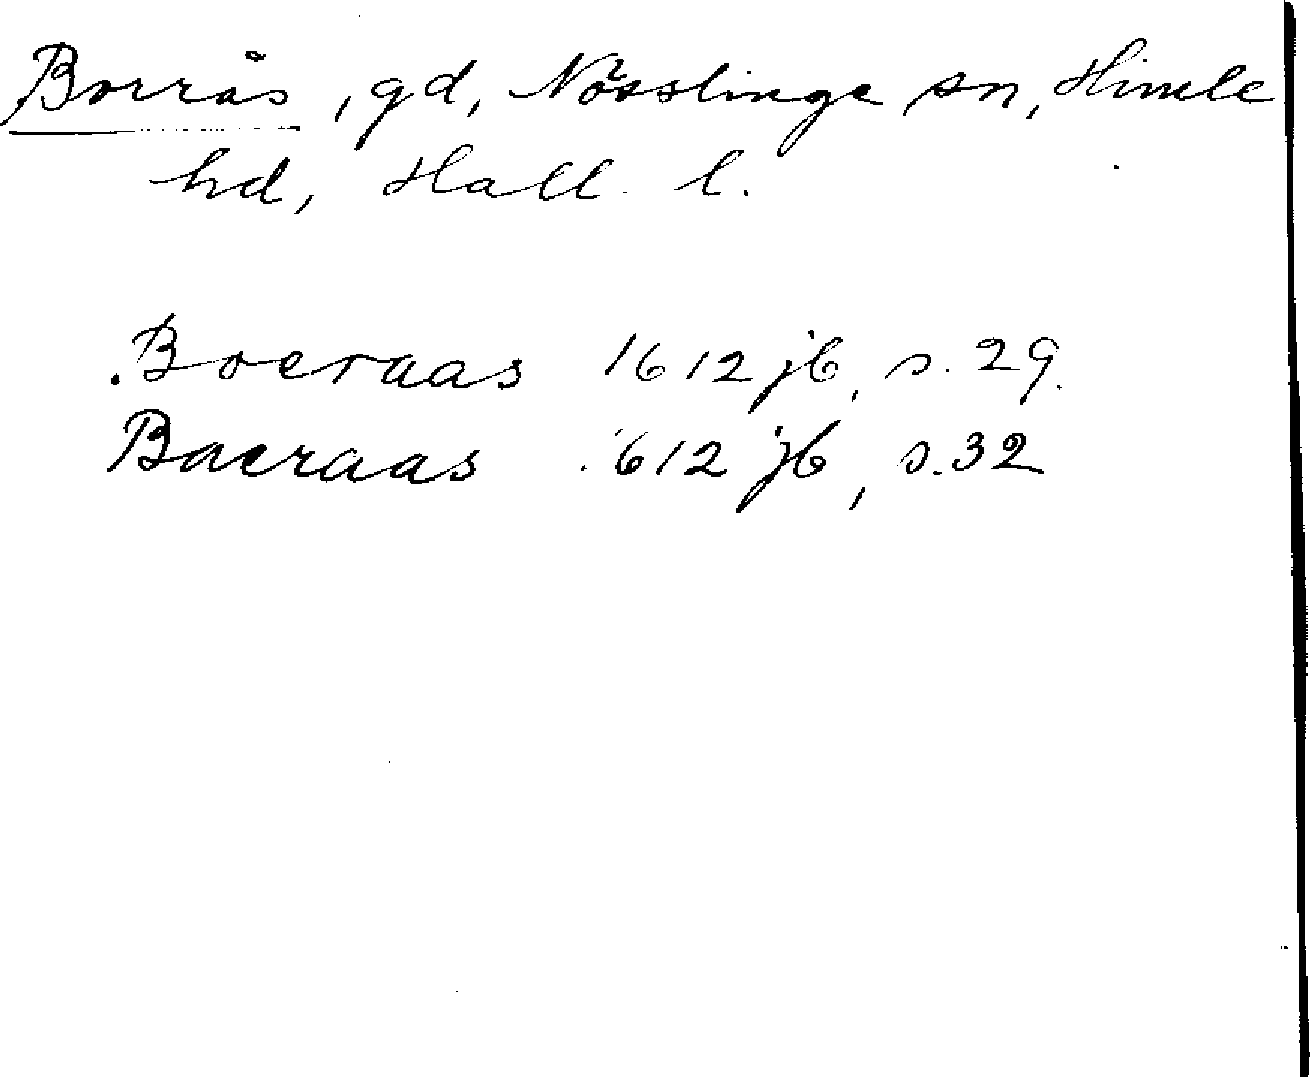 Borrås, gd, Nösslinge sn, Himle
hd, Hall. l.
Boeraas 1612 jb, s. 29.
Baeraas 1612 jb, s. 32